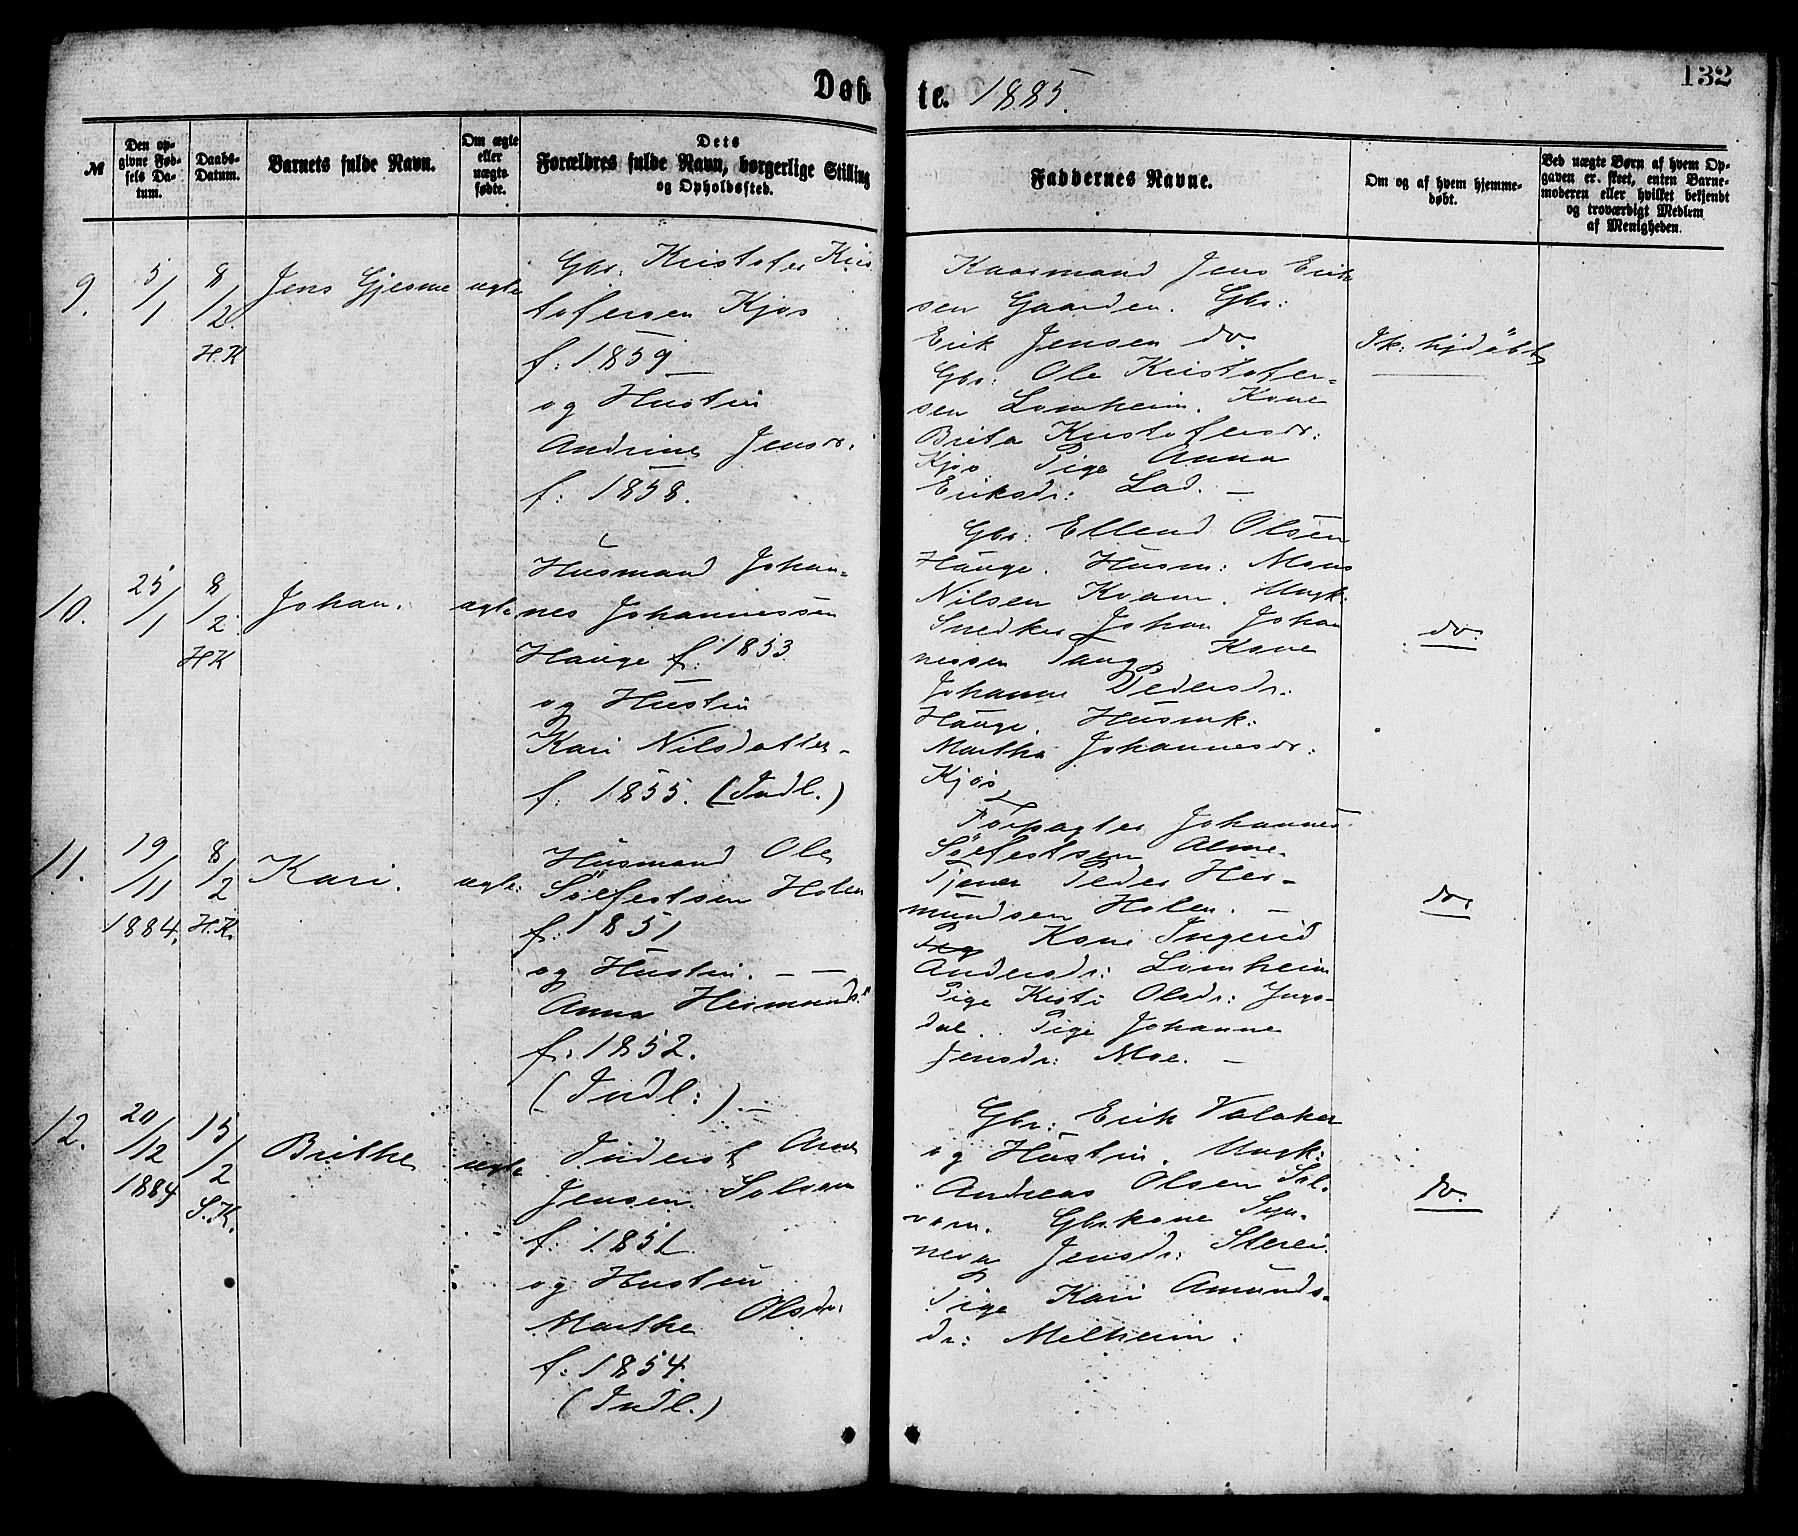 132
Døb te. 1885.
№
Den op-
givne Fød-
sels Da-
tum.
Daabs-
Datum.
Barnets fulde Navn.
Om ægte
eller
uægte
fødte.
Dets
Forældres fulde Navn, borgerlige Stilling
og Opholdssted.
Faddernes Navne.
Om og af hvem hjemme-
døbt.
Ved uægte Børn af hvem Op-
gaven er skeet, enten Barne-
moderen eller hvilket bekjendt
og troværdigt Medlem
af Menigheden.
9.
5/1
8/2.
H.K
Jens Gjesme
ægte
Gbr. Kristofer Kris
tofersen Kjos
f: 1859 —
og Hustru
Andrine Jensdr.
f: 1858.
Kaarmand Jens Erik
sen Gaarden. Gbr:
Erik Jensen do.
Gbr: Ole Kristofer-
sen Lomheim. Kone
Brita Kristofersdr:
Kjos Pige Anna
Eriksdr: Lad. —
Ik: hjdøbt
10.
25/1
8/2
H.K
Johan.
ægte
Husmand Johan-
nes Johannessen
Hauge f: 1853
og Hustru
Kari Nilsdatter
f: 1855. (Indl.)
Gbr: Ellend Olsen
Hauge. Husm: Mons
Nilsen Kvam. Ungk:
Snedker Johan Johan
nessen Taug Kone
Johanne Pedersdr.
Hauge. Husmk:
Martha Johannesdr:
Kjos
do.
11.
19/11
1884.
8/2
H.K.
Kari.
ægte:
Husmand Ole
Sølfestsen Holen
f: 1851
og Hustru. — —
Anna Hermunds"
f: 1852.
(Indl:). —
Forpagter Johannes
Sølfestsen Alme-
Tjener Peder Her-
mundsen Holen. —
Pig Kone Ingerid
Andersdr: Lomheim
Pige Kisti Olsdr: Ings-
dal. Pige Johanne
Jensdr: Moe. —
do.
12.
20/12
1884
15/2
S.K.
Brithe
ægte
Inderst Arne
Jensen Solvorn
f: 1851
og Hustru
Marthe Olsdr.
f: 1854.
(Indl.)
Gbr: Erik Valaker
og Hustru. Ungk:
Andreas Olsen Sol-
vorn. Gbrkone Syn-
neva Jensdr:
Pige Kari Amunds-
dr: Melheim.
do.